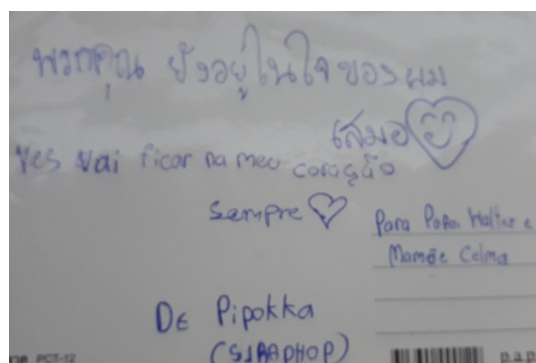 พวกคุณ ยังอยู่ในใจของผม
เสมอ
Yes vai ficar na meu coração
sempre
Para Papa Walter e
Mamãe Celma
De Pipokka
(SIRAPHOP)
PCT-12